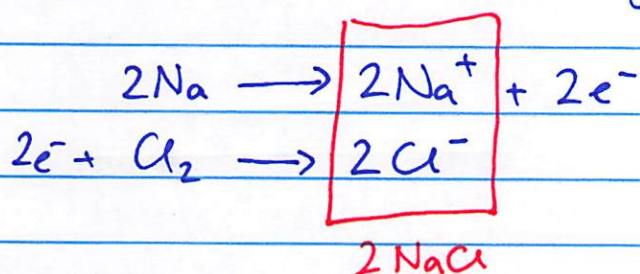 2Na ⟶ 2Na⁺ + 2e⁻
2e⁻ + Cl₂ ⟶ 2Cl⁻
2NaCl